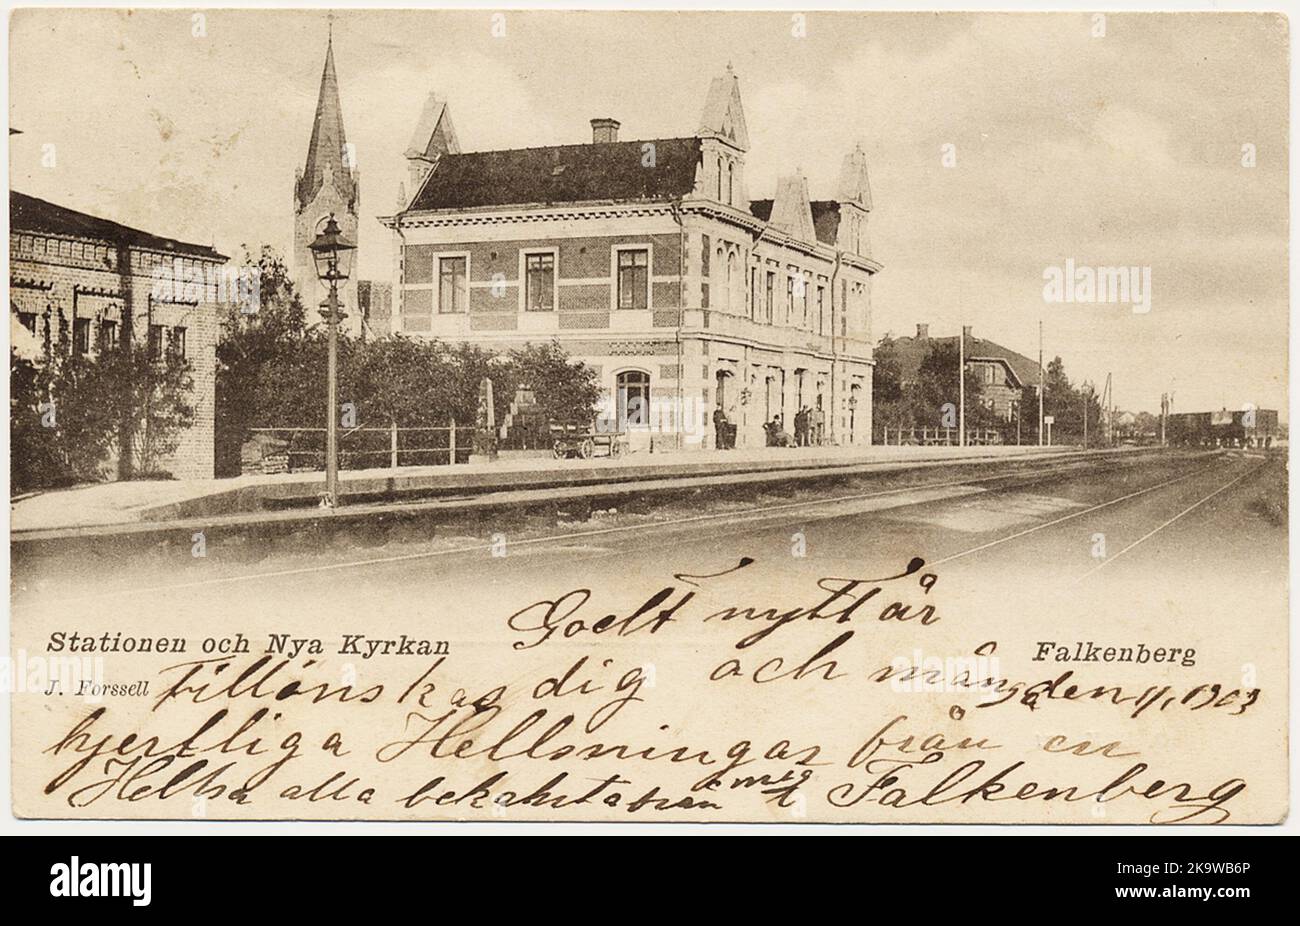 Stationen och Nya Kyrkan
Falkenberg
J. Forssell
Godt nytt år
Tillönskas dig och många
den 1/1, 1903
hjertliga Hellsningar från en
Helsa alla bekanta från mig
Falkenberg
alamy
Image ID: 2K9WB6P
www.alamy.com